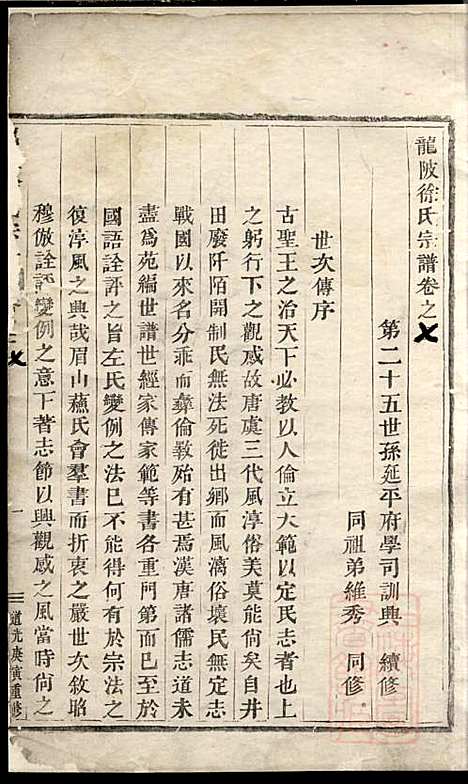 龍陂徐氏宗譜卷之
第二十五世孫延平府學司訓興 續修
同祖弟維秀 同修
世次傳序
古聖王之治天下必教以人倫立大範以定民志者也上
之躬行下之觀感故唐虞三代風淳俗美莫能尙矣自井
田廢阡陌開制民無法死徙出鄉而風漓俗壞民無定志
戰國以來名分乖而彝倫斁殆有甚焉漢唐諸儒志道未
盡爲苑編世譜世經家傳家範等書各重門第而巳至於
國語詮評之旨左氏變例之法巳不能得何有於宗法之
復淳風之興哉眉山蘓氏會羣書而折衷之嚴世次敘昭
穆倣詮評變例之意下著志節以興觀感之風當時尙之
一
道光庚寅重修